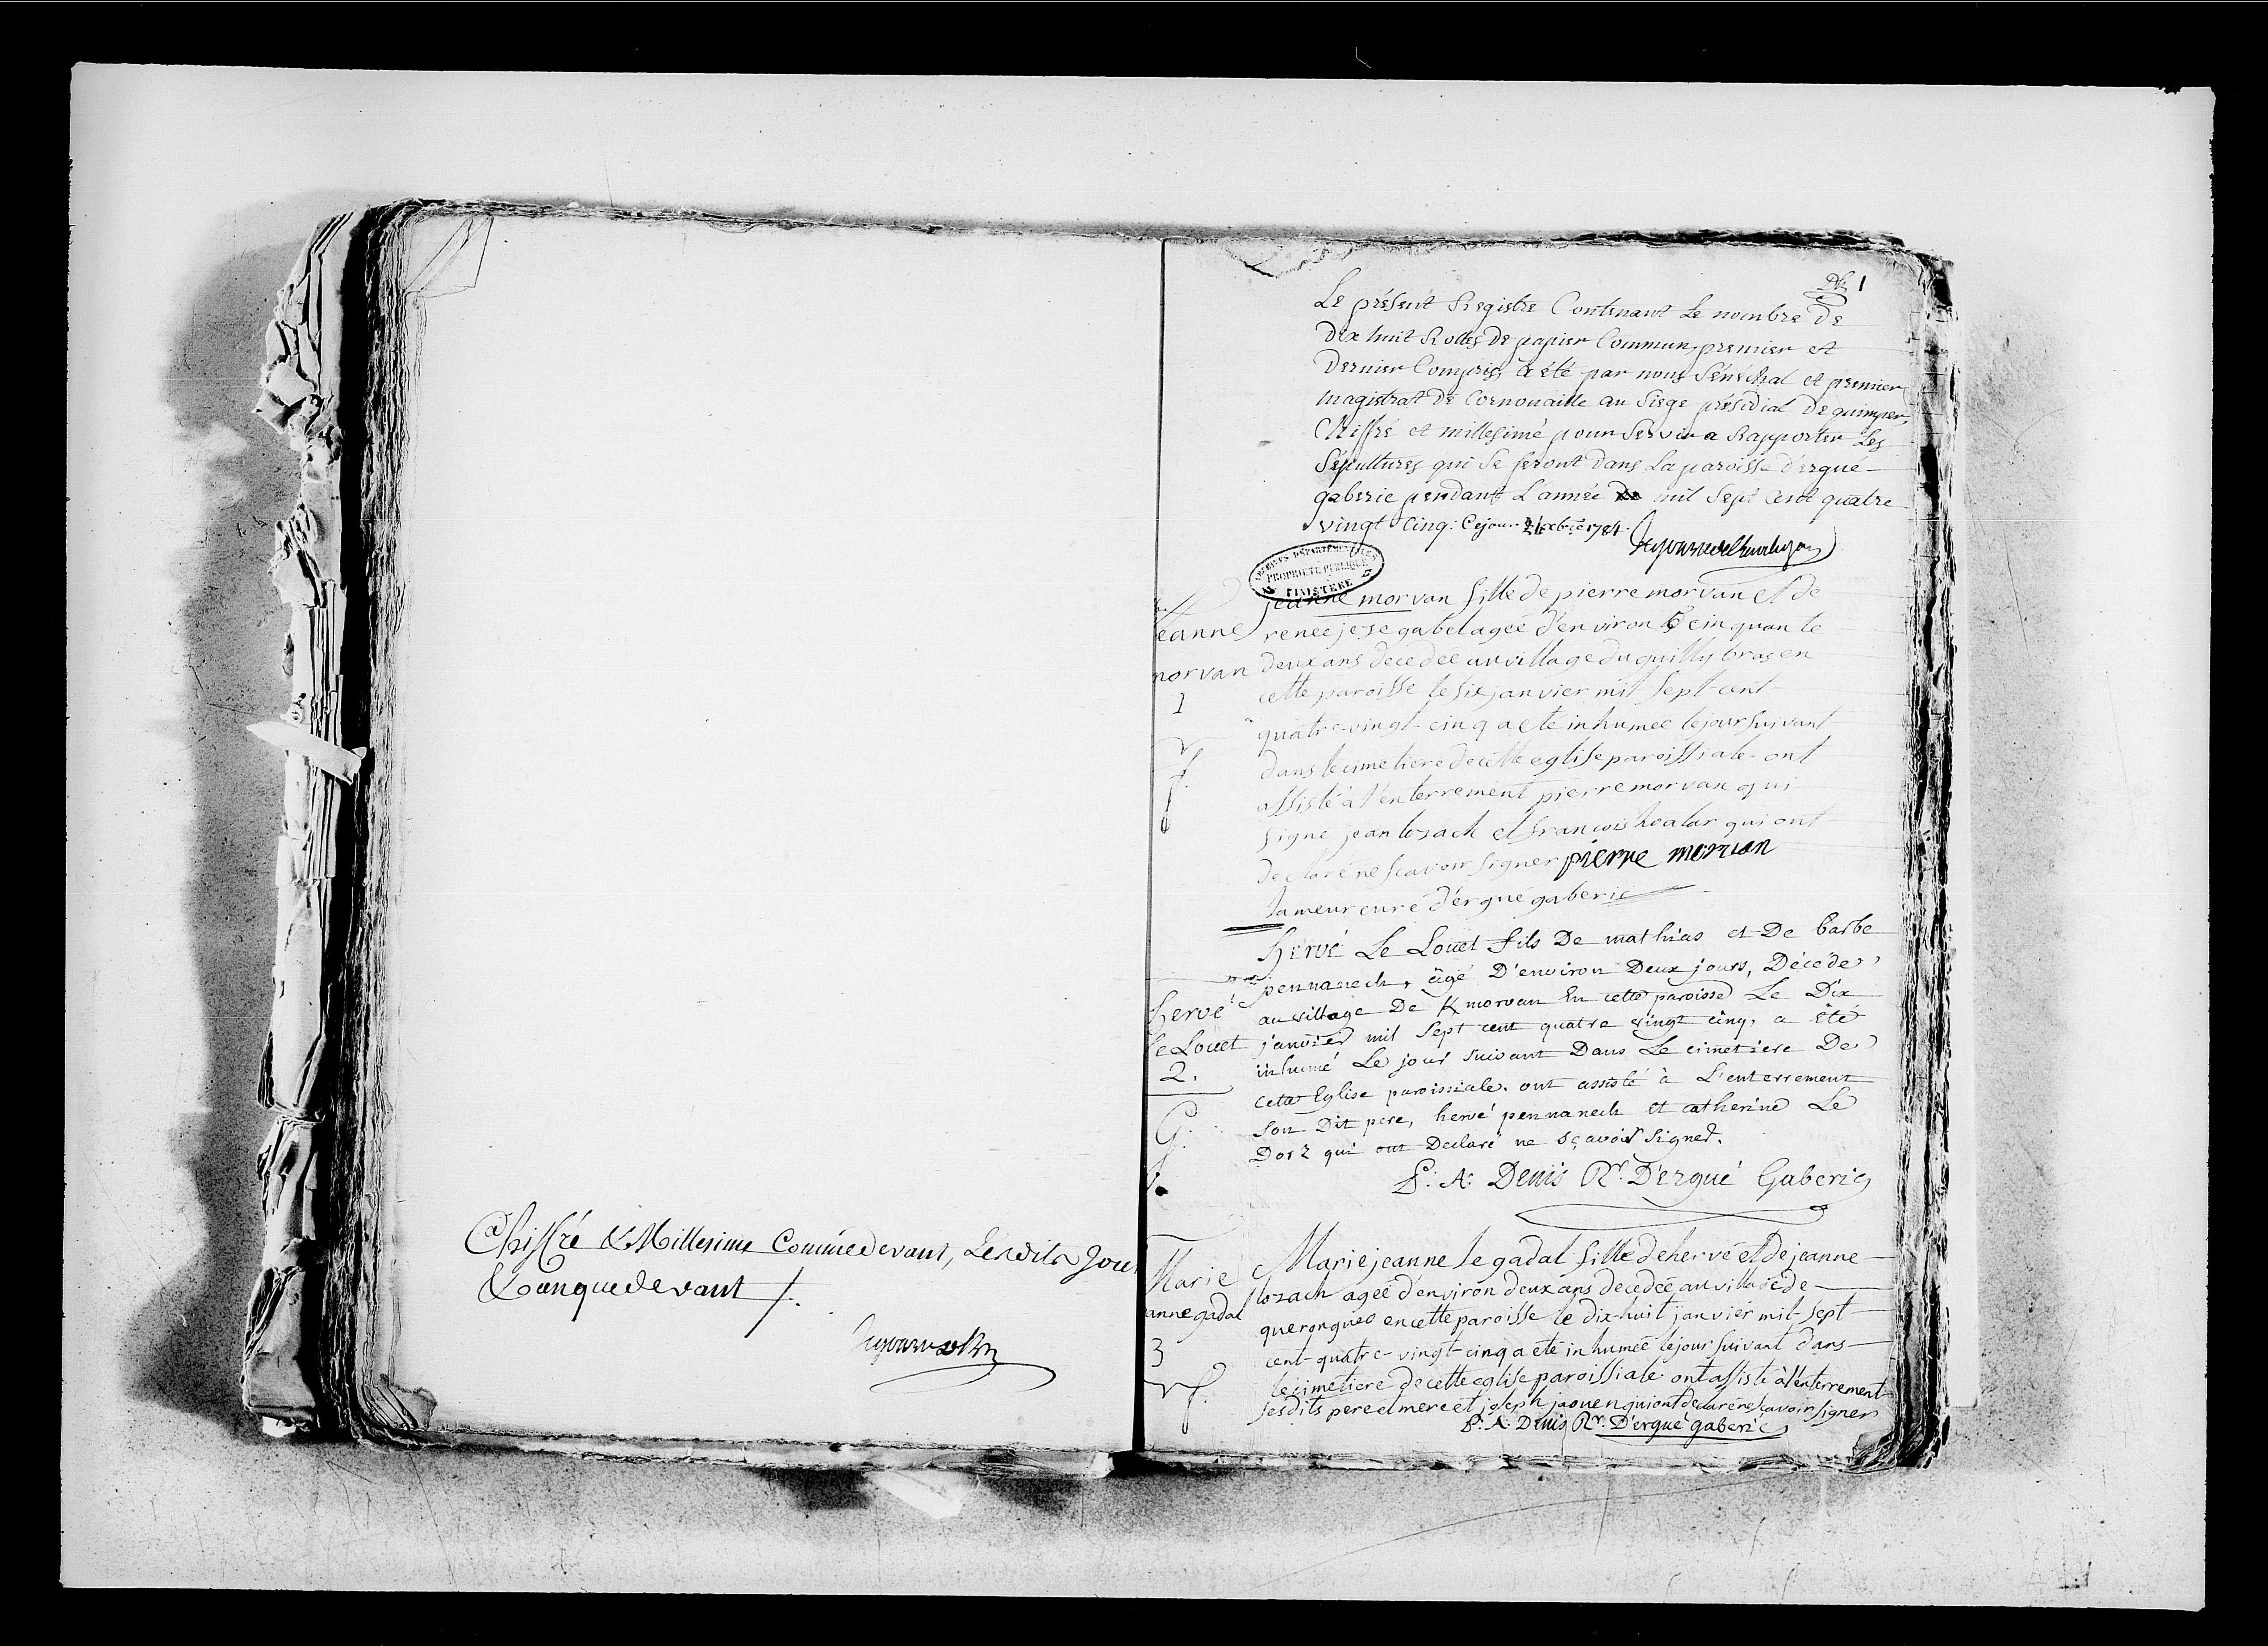 Chiffré & Millesime Comme devant, Lesdits Jour
& an que devant /.
1
Le présent Registre Contenant Le nombre de
dix huit Rolles de papier Commun, premier et
dernier Compris, a été par nous Sénéchal et premier
magistrat de Cornouaille au Siege présidial de quimper,
Chiffré et millesimé pour Servir a Rapporter Les
Sépultures qui Se feront dans La paroisse d'ergué
gaberic pendant L'année mil Sept Cent quatre
vingt Cinq. Ce jour xbre 1784.
ARCHIVES DÉPARTEMENTALES
PROPRIÉTÉ PUBLIQUE
FINISTÈRE
eanne
morvan
1
jeanne morvan fille de pierre morvan et de
renée gabel agée d'environ cinquante
deux ans decedée au village du quilly bras en
cette paroisse le six janvier mil sept cent
quatre-vingt cinq a eté inhumée le jour suivant
dans le cimetiere de cette eglise paroissiale. ont
assisté à l'enterrement pierre morvan qui
signe jean lozach et françois qui ont
declaré ne scavoir signer pierre morvan
curé d'ergué gaberic
hervé
le Louet
2.
G.
hervé Le Louet fils De mathias et De barbe
pennanech, âgé D'environ Deux jours, Décédé
au village De Kmorvan En cette paroisse Le Dix
janvier mil Sept cent quatre vingt cinq, a été
inhumé Le jour suivant Dans Le cimetiere De
cette Eglise paroissiale. ont assisté à L'enterrement
Son Dit pere, hervé pennanech et catherine Le
Dorz qui ont Declaré ne sçavoir signer.
F: A: Denis Rr. D'ergué Gaberic
Marie
anne gadal
3
f.
Marie jeanne le gadal fille de hervé et de jeanne
lozach agée d'environ deux ans decedée au village de
queronguéo en cette paroisse le dix-huit janvier mil sept
cent quatre-vingt cinq a eté inhumée le jour suivant dans
le cimetiere de cette eglise paroissiale ont assisté à l'enterrement
sesdits pere et mere et joseph jaouen qui ont declaré ne scavoir signer
F: A: Denis Rr. D'ergué gaberic